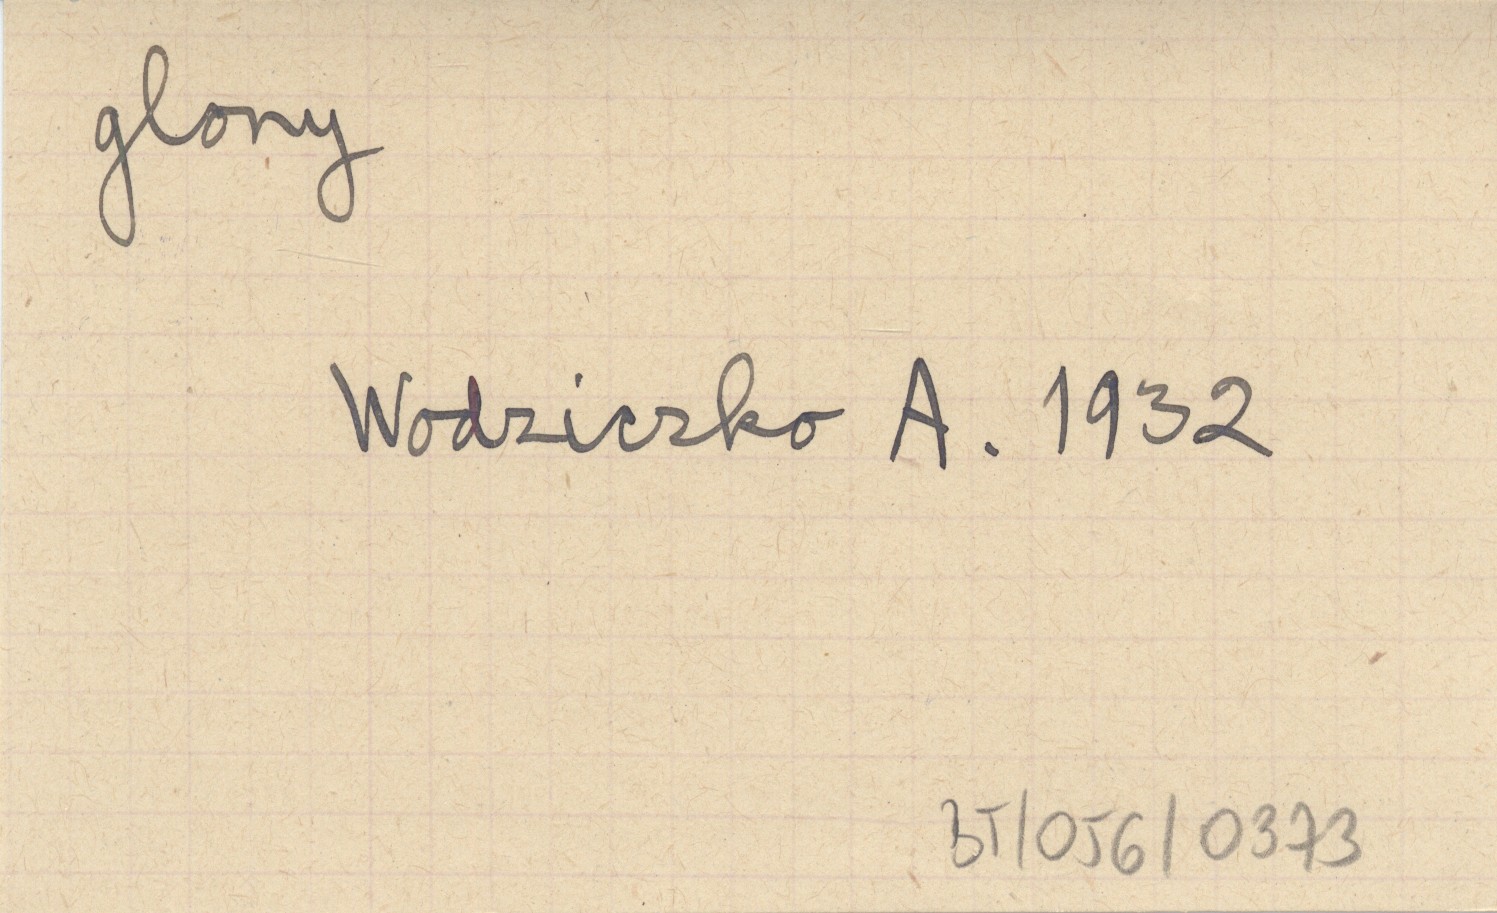 glony
Wodziczko A. 1932
BT/056/0373